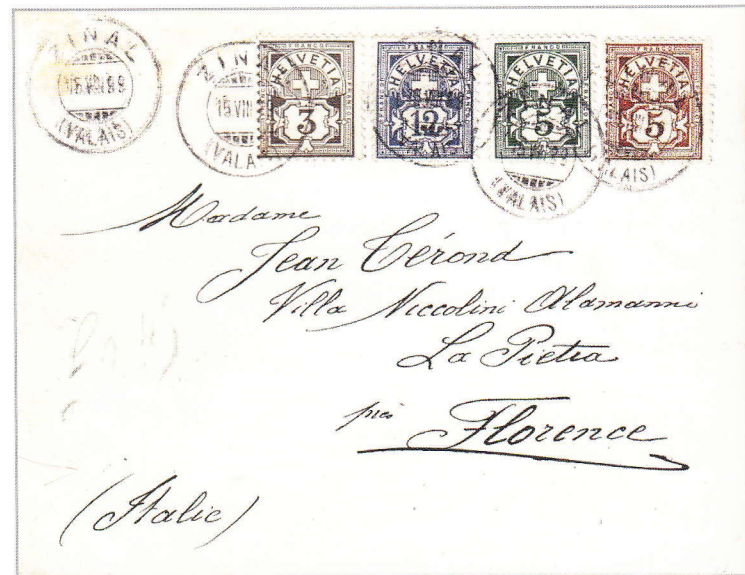 ZINAL
15.VIII.99
(VALAIS)
ZINAL
15.VIII
(VALAIS)
FRANCO
HELVETIA
3
FRANCO
HELVETIA
12
FRANCO
HELVETIA
5
FRANCO
HELVETIA
5
(VALAIS)
LAIS)
Madame
Jean Cérond
Villa Niccolini Alamanni
La Pietra
près Florence
(Italie)